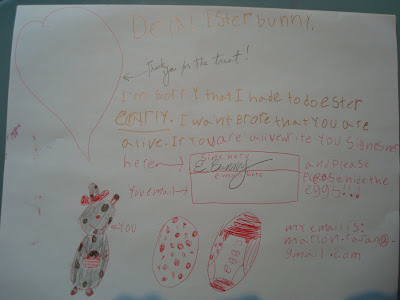 Dear Esterbunny.
Thankyou for the treat!
I'm sorry that I hade to do ester
early. I want profe that you are
alive. If you are alive write you signesher
here
sign here
E. Bunny
and please
please hide the
eggs!!!
email here
Your email
YOU
egg
my email is:
gmail.com